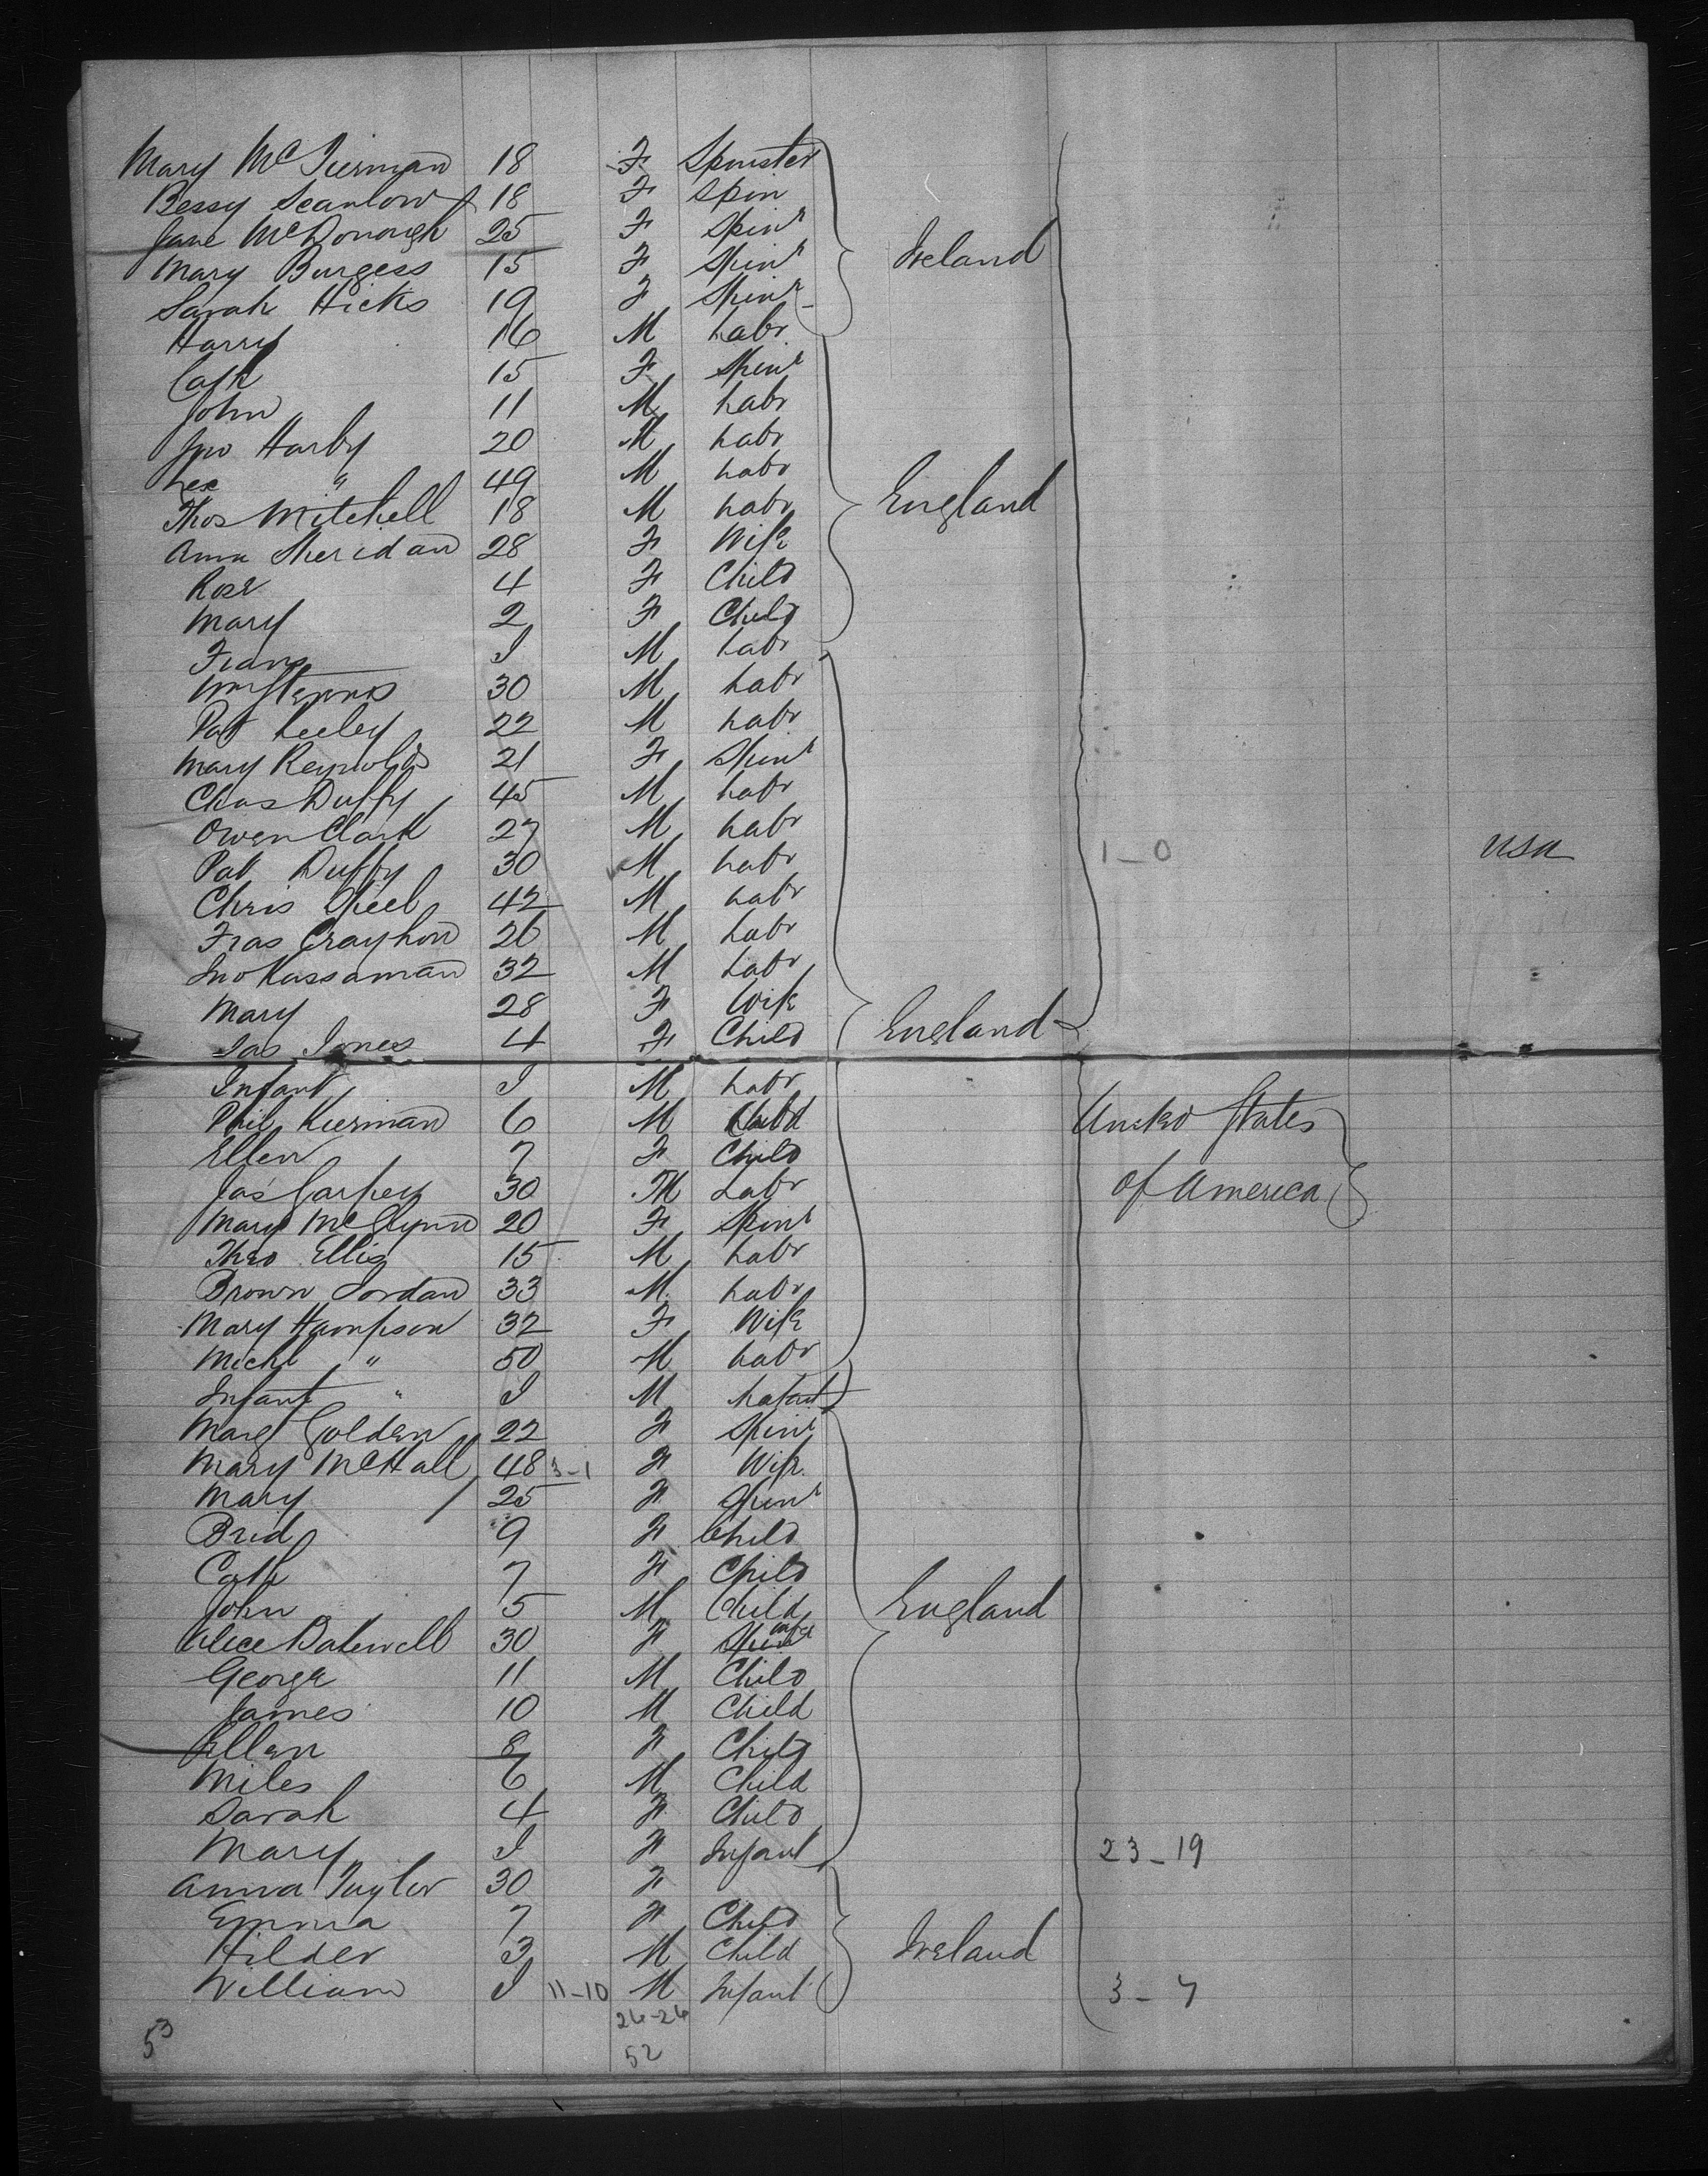 Mary McTiernan 18 F Spinster
Bessy Scanlow 18 F Spin
Jane McDonough 25 F Spinr
Mary Burgess 15 F Spinr Ireland
Sarah Hicks 19 F Spinr
Harry 16 M Labr
Cath 15 F Spinr
John 11 M Labr
Jno Harby 20 M Labr
" 49 M Labr
Thos Mitchell 18 M Labr England
Anna Sheridan 28 F Wife
Rose 4 F Child
Mary 2 F Child
Frans I M Labr
30 M Labr
Pat Keeley 22 M Labr
Mary Reynolds 21 F Spinr
Chas Duffy 45 M Labr
Owen Clark 27 M Labr
Pat Duffy 30 M Labr 1-0 USA
Chris 42 M Labr
Fras 26 M Labr
Jno 32 M Labr
Mary 28 F Wife
Jas Jones 4 F Child England
Infant I M Labr
Phil Kiernan 6 M Child United States
Ellen 7 F Child
Jas 30 M Labr of America
Mary McGlynn 20 F Spinr
Theo Ellis 15 M Labr
Brown Jordan 33 M Labr
Mary Hampson 32 F Wife
Michl " 50 M Labr
Infant " I M Infant
Marg Golden 22 F Spinr
Mary McHall 48 3-1 F Wife
Mary 25 F Spinr
Brid 9 F Child
Cath 7 F Child
John 5 M Child England
Alice Bakewell 30 F Spinr Wife
George 11 M Child
James 10 M Child
Ellen 8 F Child
Miles 6 M Child
Sarah 4 F Child
Mary I F Infant 23-19
Anna Taylor 30 F
Emma 7 F Child
Hilder 3 M Child Ireland
William I 11-10 M Infant 3-7
26-26
53 52